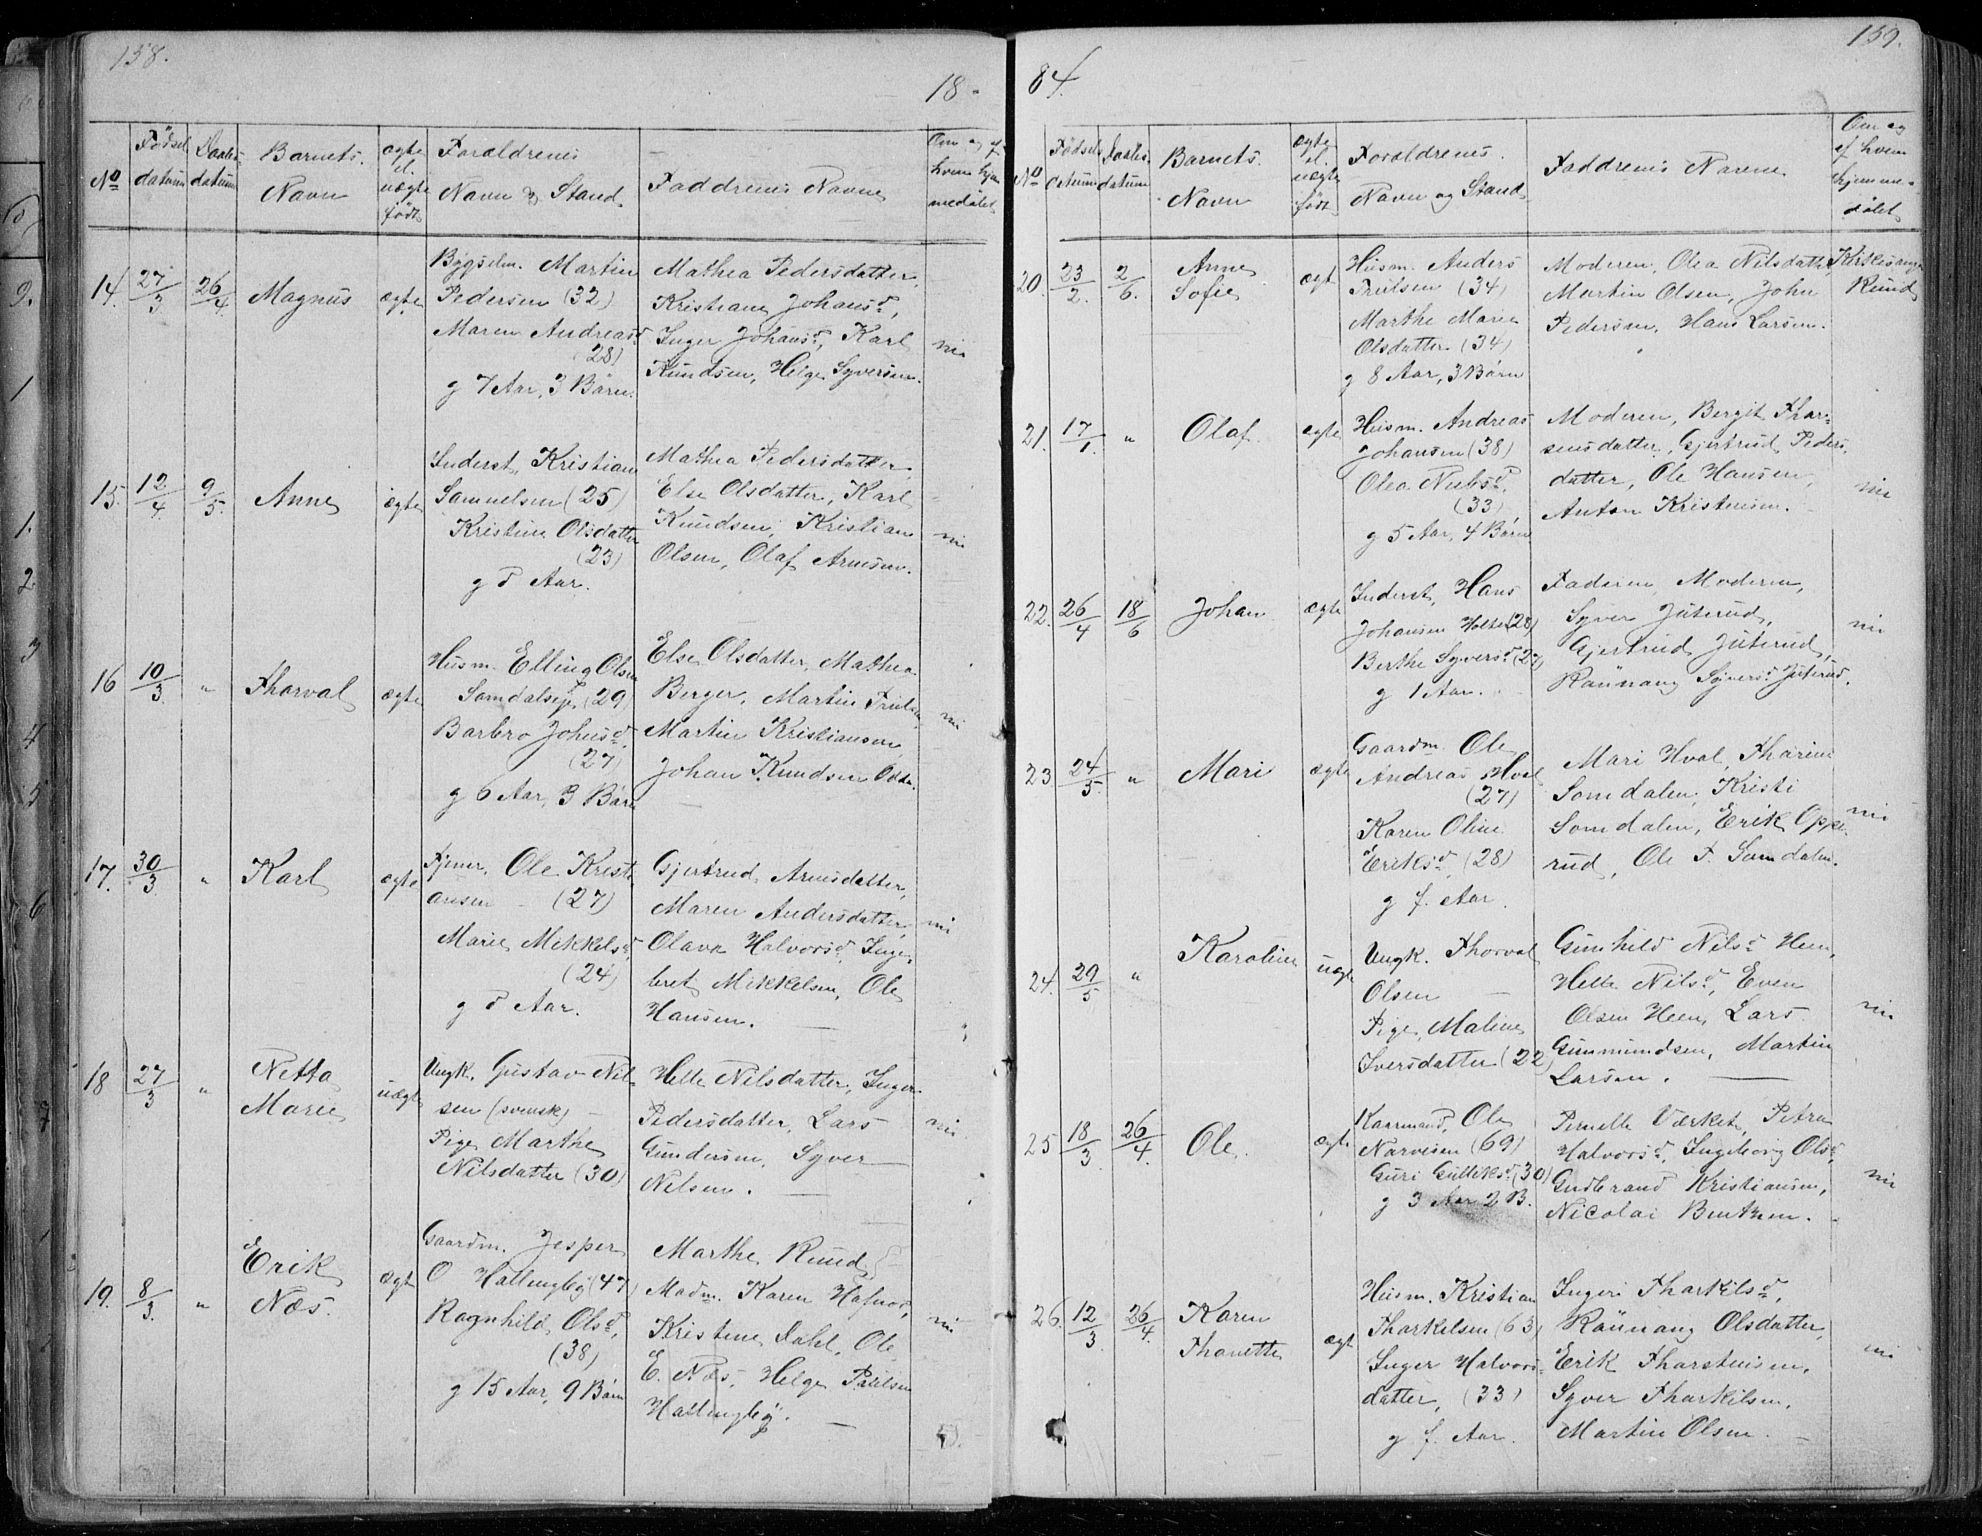 158.
18-
No
Fødsels datum
Daabs datum
Barnets Navn
ægte el. uægte født
Forældrenes Navn og Stand
Faddrenes Navne
Om og af hvem hjemmedøbt
14. 27/3 26/4 Magnus ægte
Bygselm. Martin
Pedersen (32)
Maren Andreasd.
(28)
g 7 Aar, 3 Børn.
Mathea Pedersdatter,
Kristiane Johansd.,
Inger Johansd., Karl
Knudsen, Helge Syversen.
nei
15. 12/4 9/5 Anne ægte
Inderst, Kristian
Samuelsen (25)
Kristine Olsdatter
(23)
g Aar.
Mathea Pedersdatter,
Else Olsdatter, Karl
Knudsen, Kristian
Olsen, Olaf Arnesen.
nei
16 10/3 " Thorval ægte
Husm. Elling Olsen
Somdalseje (29)
Barbro Johnsd.
(27)
g 6 Aar, 3 Børn
Else Olsdatter, Mathea
Berger, Martin
Martin Kristiansen
Johan Knudsen
nei
17. 30/3 " Karl ægte
Tjener, Ole Kristi
ansen - (27)
Marie Mikkelsd.
(24)
g Aar.
Gjertrud Arnesdatter,
Maren Andersdatter,
Olava Halvorsd., Inge
bret Mikkelsen, Ole
Hansen.
nei
18 27/3 " Netta Marie uægte
Ungk. Gustav Nil
sen (svensk) -
Pige Marthe
Nilsdatter (30)
Helle Nilsdatter, Inger
Pedersdatter, Lars
Gundersen, Syver
Nilsen.
nei
19. 8/3 " Erik Næs. ægte
Gaardm. Jesper
O Hallingby (47)
Ragnhild Olsd.
(38)
g 15 Aar, 9 Børn
Marthe Ruud,
Madm. Karen Hafnor,
Kristine Dahl, Ole
E. Næs, Helge Paulsen
Hallingby.
nei
159.
84.
No
Fødsels datum
Daabs datum
Barnets Navn
ægte el. uægte født
Forældrenes Navn og Stand
Faddrenes Navne
Om og af hvem hjemmedøbt
20. 23/2. 2/6. Anne Sofie ægte
Husm. Anders
Truilsen (34)
Marthe Marie
Olsdatter (34)
g 8 Aar, 3 Børn
Moderen, Olea Nilsdatter,
Martin Olsen, John
Pedersen, Hans Larsen.
Kirkesanger
Ruud
21. 17/1. " Olaf. ægte
Husm. Andreas
Johansen (38)
Olea Nielsd.
(33)
g 5 Aar, 4 Børn
Moderen, Bergit Thor-
sensdatter, Gjertrud Peders
datter, Ole Hansen,
Anton Kristensen.
nei
22. 26/4 18/6 Johan ægte
Inderst, Hans
Johansen Holte (28)
Berthe Syversd. (27)
g 1 Aar.
Faderen, Moderen,
Syver Juterud,
Gjertrud Juterud,
Raünaug Syversd. Juterud.
nei
23 24/5. " Mari ægte
Gaardm. Ole
Andreas Hval
(27)
Karen Oline
Eriksd. (28)
g f. Aar.
Mari Hval, Thorine
Somdalen, Kristi
Somdalen, Erik Oppe
rud, Ole T. Somdalen.
nei
24. 29/5 " Karoline uægte
Ungk. Thorval
Olsen -
Pige, Maline
Iversdatter (22)
Gunhild Nilsd. Heen,
Helle Nilsd., Even
Olsen Heen, Lars
Gunmundsen, Martin
Larsen.
nei
25 18/3 26/4. Ole. ægte
Kaarmand, Ole
Narvesen (69)
Guri Gulliksd. (30)
g 3 Aar 2 B.
Pernelle Værket, Petra
Halvorsd., Ingeborg Olsd.
Gudbrand Kristiansen,
Nicolai Bentzen.
nei
26. 12/3 26/4. Karen Thonette ægte
Husm. Kristian
Tharkelsen (63)
Inger Halvors-
datter, (33)
g f. Aar.
Ingeri Tharkilsd.,
Raünaug Olsdatter,
Erik Tharstensen,
Syver Tharkilsen,
Martin Olsen.
nei